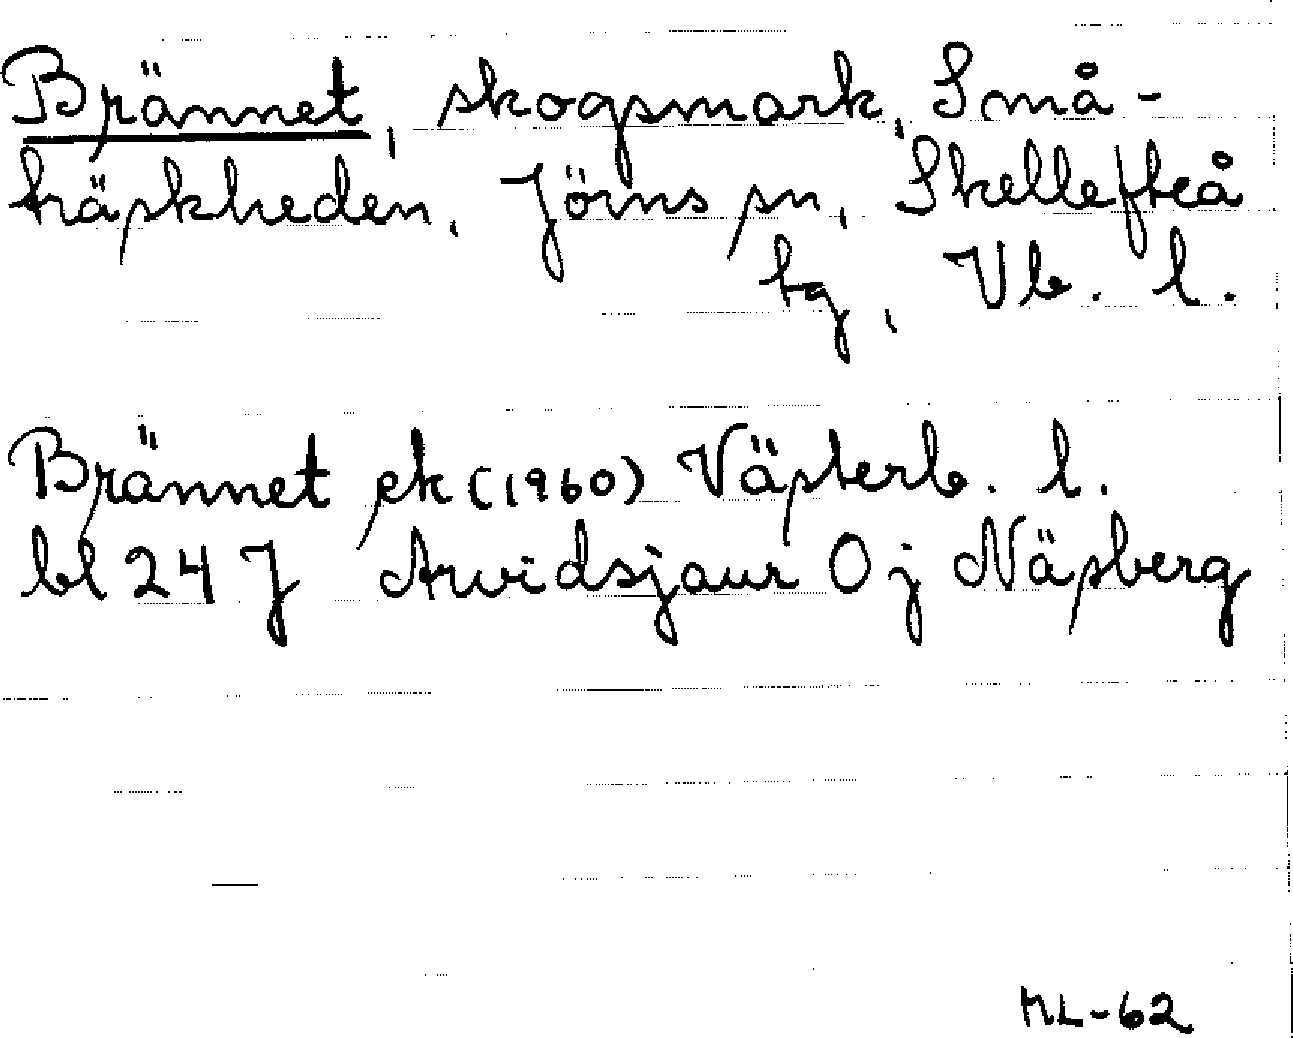 Brännet, skogsmark, Små-
träskheden, Jörns sn, Skellefteå
tg, Vb. l.
Brännet ek (1960) Västerb. l.
bl 24 J Arvidsjaur Oj Näsberg
ML-62